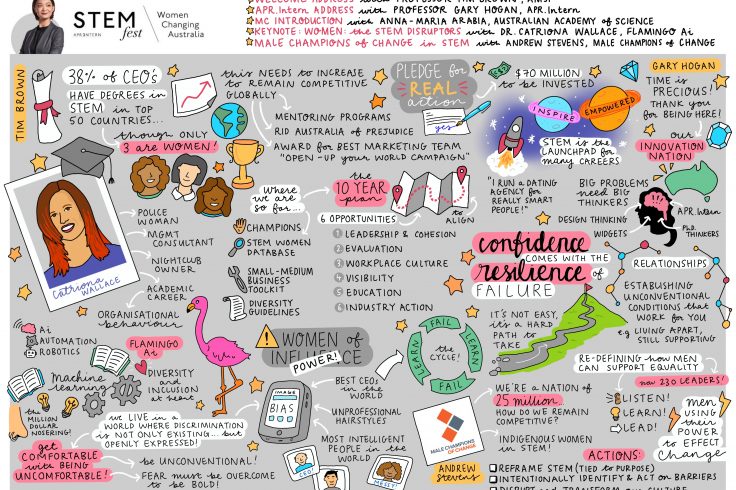 STEM
fest
APR.INTERN
Women
Changing
Australia
APR.Intern ADDRESS with PROFESSOR GARY HOGAN, APR.Intern
MC INTRODUCTION with ANNA-MARIA ARABIA, AUSTRALIAN ACADEMY of SCIENCE
KEYNOTE: WOMEN: the STEM DISRUPTORS with DR. CATRIONA WALLACE, FLAMINGO Ai
MALE CHAMPIONS of CHANGE in STEM with ANDREW STEVENS, MALE CHAMPIONS of CHANGE
TIM BROWN
38% of CEO's
HAVE DEGREES in
STEM in TOP
50 COUNTRIES...
though ONLY
3 are WOMEN!
this NEEDS to INCREASE
to REMAIN COMPETITIVE
GLOBALLY
MENTORING PROGRAMS
RID AUSTRALIA of PREJUDICE
AWARD for BEST MARKETING TEAM
"OPEN-UP your WORLD CAMPAIGN"
PLEDGE for
REAL
action
yes
$70 MILLION
to be INVESTED
INSPIRE
EMPOWERED
STEM is the
LAUNCHPAD for
many CAREERS
GARY HOGAN
TIME is
PRECIOUS!
THANK you
for BEING HERE!
our
INNOVATION
NATION
"I RUN a DATING
AGENCY for
REALLY SMART
PEOPLE!"
BIG PROBLEMS
need BIG
THINKERS
DESIGN THINKING
WIDGETS
APR.Intern
Ph.D.
THINKERS
CATRIONA
WALLACE
POLICE
WOMAN
MGMT
CONSULTANT
NIGHTCLUB
OWNER
ACADEMIC
CAREER
ORGANISATIONAL
behaviour
Where
we are
so far...
CHAMPIONS
STEM WOMEN
DATABASE
SMALL-MEDIUM
BUSINESS
TOOLKIT
DIVERSITY
GUIDELINES
the
10 YEAR
plan
to
ALIGN
6 OPPORTUNITIES
1 LEADERSHIP & COHESION
2 EVALUATION
3 WORKPLACE CULTURE
4 VISIBILITY
5 EDUCATION
6 INDUSTRY ACTION
confidence
COMES WITH the
resilience of
FAILURE
IT'S NOT EASY,
it's a HARD
PATH to
TAKE
RELATIONSHIPS
ESTABLISHING
UNCONVENTIONAL
CONDITIONS that
WORK for YOU
e.g LIVING APART,
STILL SUPPORTING
Ai
AUTOMATION
ROBOTICS
FLAMINGO
Ai
machine
learning
DIVERSITY
and INCLUSION
at heart
the
MILLION
DOLLAR
NOSERING!
we LIVE in a
WORLD WHERE DISCRIMINATION
is NOT ONLY EXISTING... but
OPENLY EXPRESSED!
get
COMFORTABLE
with BEING
UNCOMFORTABLE!
be UNCONVENTIONAL!
FEAR must be OVERCOME
to be BOLD!
WOMEN of
INFLUENCE
POWER!
IMAGE
BIAS
BEST CEO's
in the
WORLD
UNPROFESSIONAL
HAIRSTYLES
MOST INTELLIGENT
PEOPLE in the
WORLD
CEO!
MESSY!
FAIL
LEARN
FAIL
LEARN
the
CYCLE!
WE'RE a NATION of
25 million.
HOW DO WE REMAIN
COMPETITIVE?
INDIGENOUS WOMEN
in STEM!
MALE CHAMPIONS
OF CHANGE
ANDREW
Stevens
RE-DEFINING how MEN
CAN SUPPORT EQUALITY
now 230 LEADERS!
LISTEN!
LEARN!
LEAD!
men
USING
their
POWER
to EFFECT
Change
ACTIONS:
REFRAME STEM (TIED to PURPOSE)
INTENTIONALLY IDENTIFY & ACT on BARRIERS